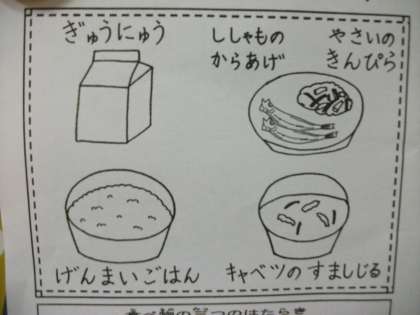 ぎゅうにゅう
ししゃもの
からあげ
やさいの
きんぴら
げんまいごはん
キャベツの すましじる